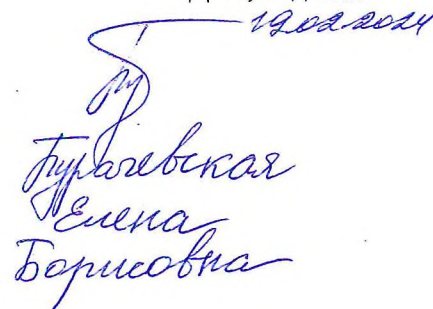 19.02.2024
Бурачевская
Елена
Борисовна